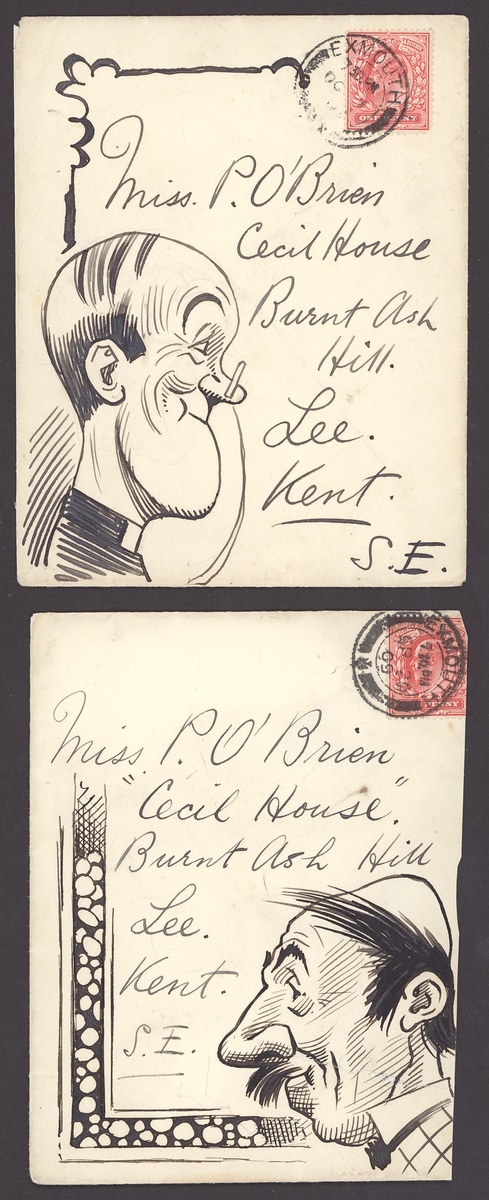 EXMOUTH
ONE PENNY
Miss. P. O'Brien
Cecil House
Burnt Ash
Hill.
Lee.
Kent.
S.E.
EXMOUTH
7.30 PM
PENNY
Miss. P. O'Brien
"Cecil House".
Burnt Ash Hill
Lee.
Kent.
S.E.